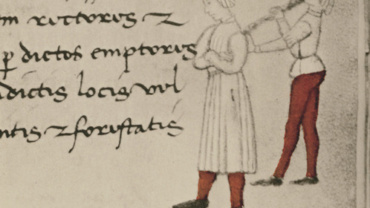 m rectores &
ꝑ dictos emptores
dictis locis vel
ntis & forestatis